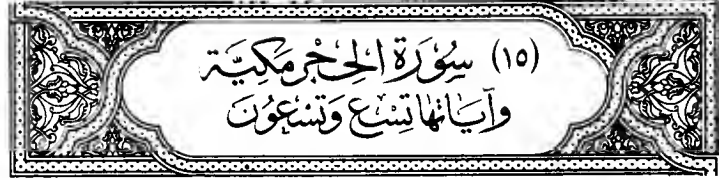 (١٥) سُورَة الحِجْر مَكِيَّة
وآيَاتها تِسْع وَتِسْعُونَ